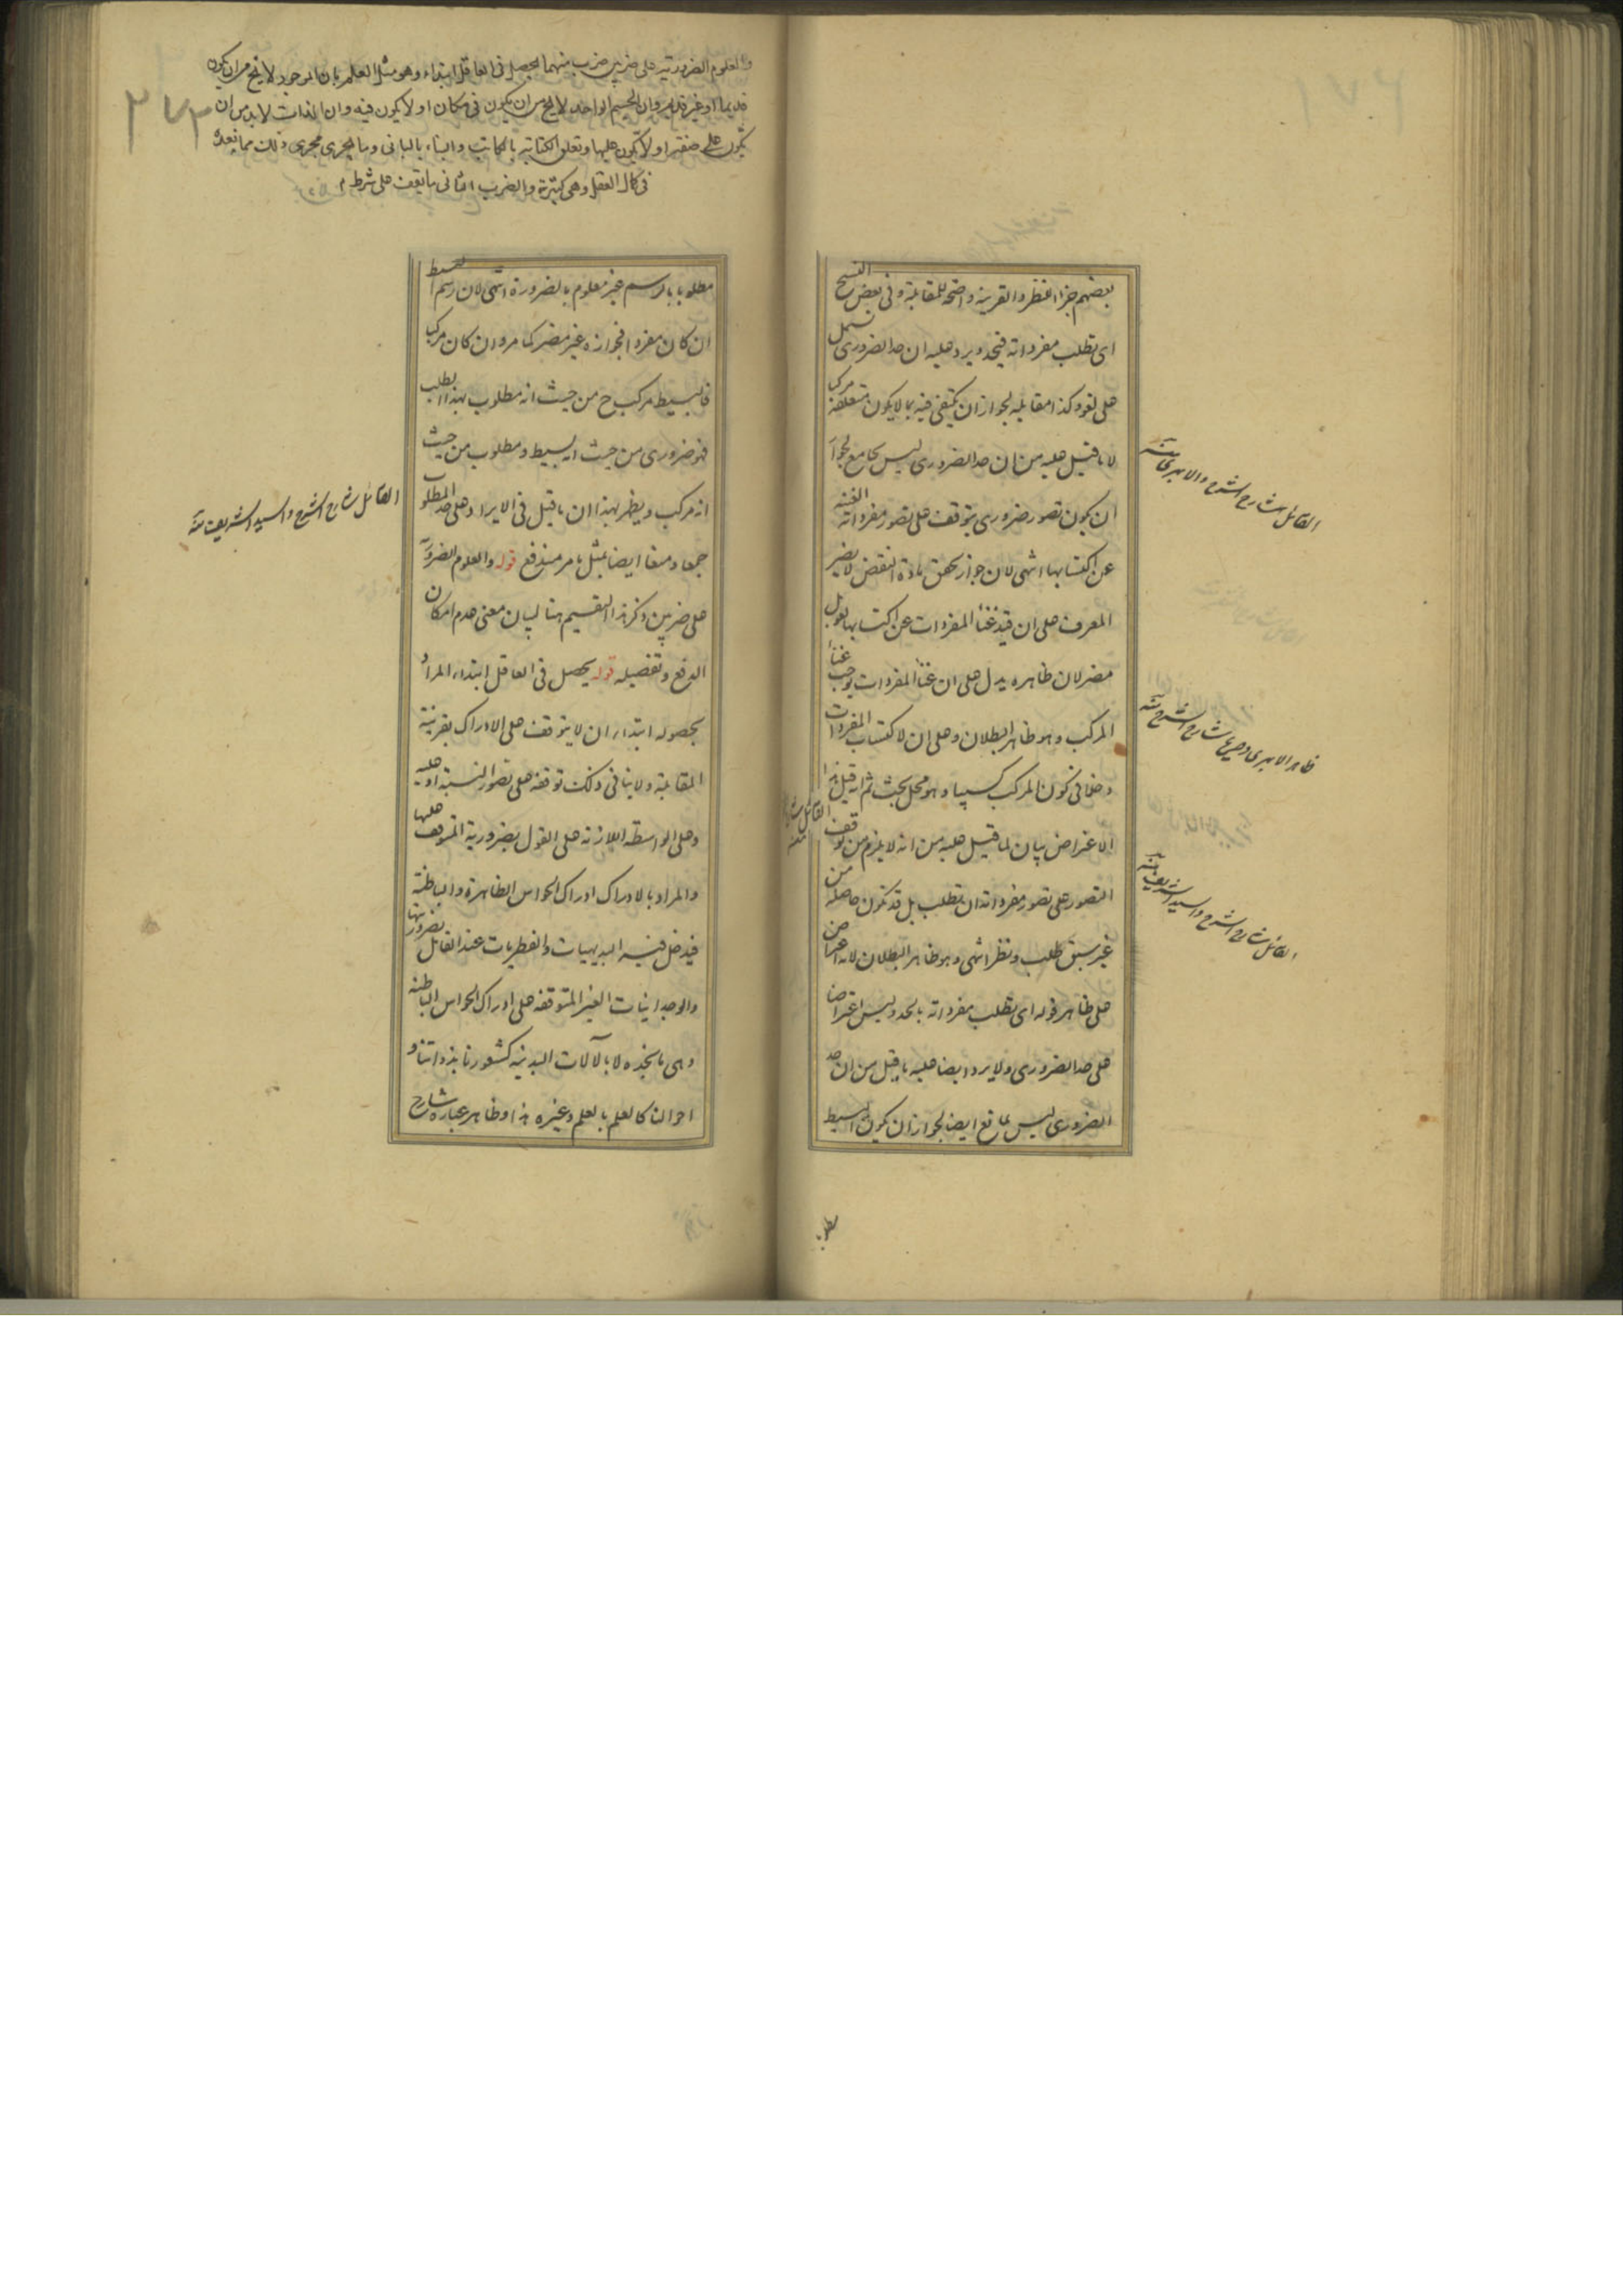 بعضهم جزء النظر والقرينة واضحة للمقابلة وفى بعض النسخ
اى تطلب مفرداته فيحد ويرد عليه ان حد الضرورى يشمل
على لغو وكذا مقابله لجواز ان يكتفى فيه بما لا يكون متعلقه مركبا
لا ما قيل عليه من ان حد الضرورى ليس بجامع لجواز
ان يكون تصور ضرورى يتوقف على تصور مفرداته الغنية
عن اكتسابها انتهى لان جواز تحقق مادة النقض لا يضر
المعرف على ان قيد غناء المفردات عن اكتسابها
مضر لان ظاهره يدل على ان غناء المفردات يوجب غناء
المركب وهو ظاهر البطلان وعلى ان لاكتساب المفردات
دخلا فى كون المركب كسبيا وهو محل بحث ثم انه قيل هذا
الاعتراض بيان لما قيل عليه من انه لا يلزم من توقف
التصور على تصور مفرداته ان تطلب بل قد تكون حاصلة من
غير سبق طلب ونظر انتهى وهو ظاهر البطلان لانه اعتراض
على ظاهر قوله اى تطلب مفرداته بالحد وليس اعتراضا
على حد الضرورى ولا يرد ايضا عليه ما قيل من ان حد
الضرورى ليس بمانع ايضا لجواز ان يكون البسيط
مطلوبا
القائل شارح الشرح والابهرى منه
ظاهر الابهرى وصريح شارح الشرح منه
القائل شارح الشرح والسيد الشريف منه
والعلوم الضرورية على ضربين ضرب منهما يحصل فى العاقل ابتداء وهو مثل العلم بان الموجود لا يخ من ان يكون
قديما او غير قديم وان الجسم الواحد لا يخ من ان يكون فى مكان او لا يكون فيه وان الذات لا بد من ان
يكون على صفة او لا يكون عليها وتعلق الكتابة بالكاتب والبناء بالبانى وما يجرى مجرى ذلك مما نعده
فى كمال العقل وهى كثيرة والضرب الثانى ما يقف على شرط
٢٧٣
مطلوبا بالرسم غير معلوم بالضرورة انتهى لان رسم البسيط
ان كان مفردا فجوازه غير مضر كما مر وان كان مركبا
فالبسيط مركب ح من حيث انه مطلوب بهذا الطلب
فهو ضرورى من حيث انه بسيط ومطلوب من حيث
انه مركب ويظهر بهذا ان ما قيل فى الايراد على حد المطلوب
جمعا ومنعا ايضا بمثل ما مر مندفع قوله والعلوم الضرورية
على ضربين ذكر هذا التقسيم هنا لبيان معنى عدم امكان
الدفع وتفصيله قوله يحصل فى العاقل ابتداء المراد
بحصوله ابتداء ان لا يتوقف على الادراك بقرينة
المقابلة ولا ينافى ذلك توقفه على تصور النسبة او عليه
وعلى الواسطة اللازمة على القول بضرورية المتوقف عليها
والمراد بالادراك ادراك الحواس الظاهرة والباطنة
فيدخل فيه البديهيات والفطريات عند القائل بضروريتها
والوجدانيات الغير المتوقفة على ادراك الحواس الباطنة
وهى ما نجده لا بالآلات البدنية كشعورنا بذواتنا و
احوالنا كالعلم بالعلم وغيره هذا وظاهر عبارة شارح
القائل شارح الشرح والسيد الشريف منه